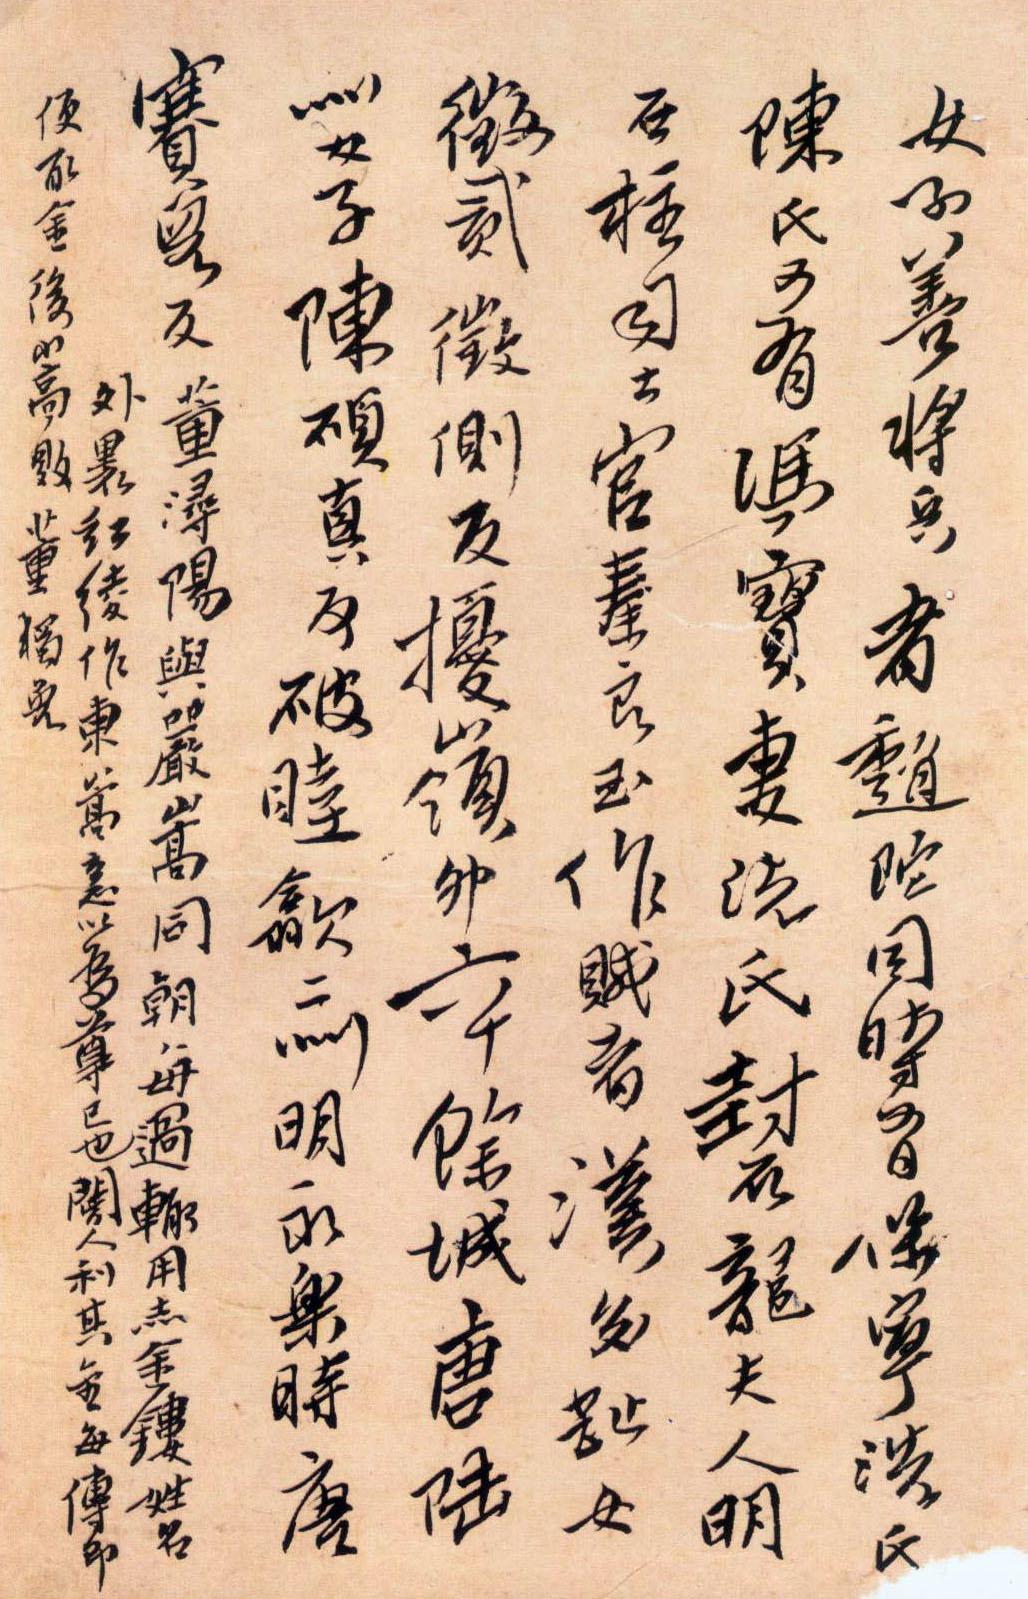 女子善將兵者趙陀同時有保寧洗氏
陳氏又有馮寶妻洗氏封石龍夫人明
石柱司土官秦良玉作賊者漢交趾女
徵貳徵側反擾嶺外六十餘城唐睦
州女子陳碩真反破睦歙二州明永樂時唐
賽兒反 董潯陽與嚴嵩同朝每過輒用赤金鏤姓名
外裹紅綾作柬嵩意以為尊己也閽人利其金每傳即
便取金後嵩敗董獨免